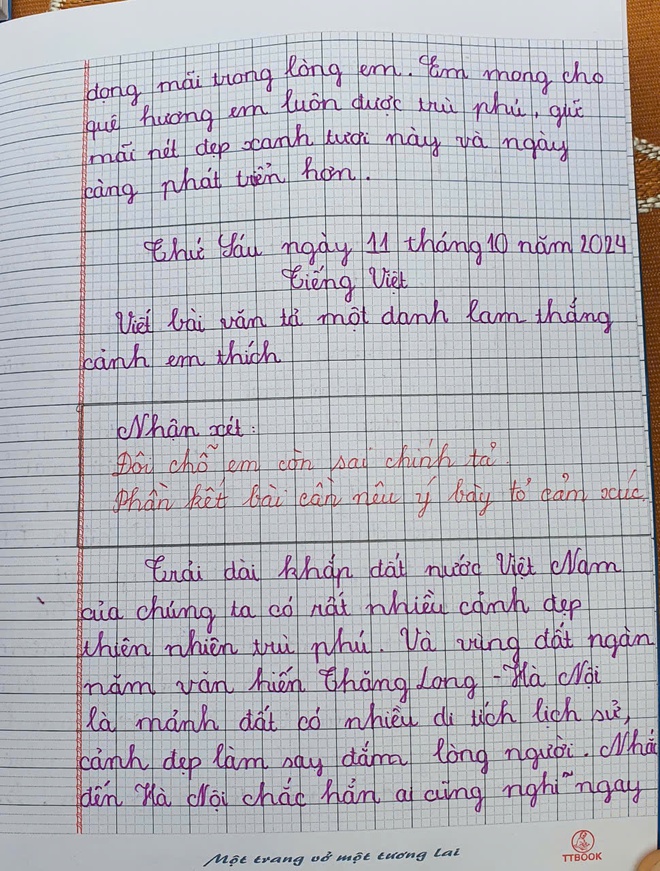 dọng mãi trong lòng em. Em mong cho
quê hương em luôn được trù phú, giữ
mãi nét đẹp xanh tươi này và ngày
càng phát triển hơn.
Thứ Sáu ngày 11 tháng 10 năm 2024
Tiếng Việt
Viết bài văn tả một danh lam thắng
cảnh em thích
Nhận xét:
Đôi chỗ em còn sai chính tả.
Phần kết bài cần nêu ý bày tỏ cảm xúc.
Trải dài khắp đất nước Việt Nam
của chúng ta có rất nhiều cảnh đẹp
thiên nhiên trù phú. Và vùng đất ngàn
năm văn hiến Thăng Long - Hà Nội
là mảnh đất có nhiều di tích lịch sử,
cảnh đẹp làm say đắm lòng người. Nhắ
đến Hà Nội chắc hẳn ai cũng nghĩ ngay
Một trang vở một tương lai
TTBOOK